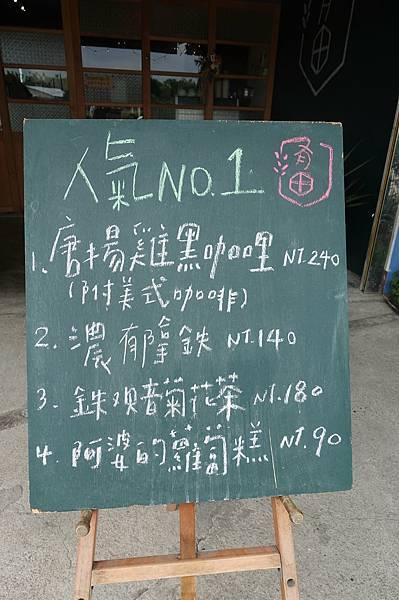 有田
人氣NO.1
有田
1.唐揚雞黑咖哩 NT.240
(附美式咖啡)
2.濃郁拿鉄 NT.140
3.鉄观音菊花茶 NT.180
4.阿婆的蘿蔔糕 NT.90